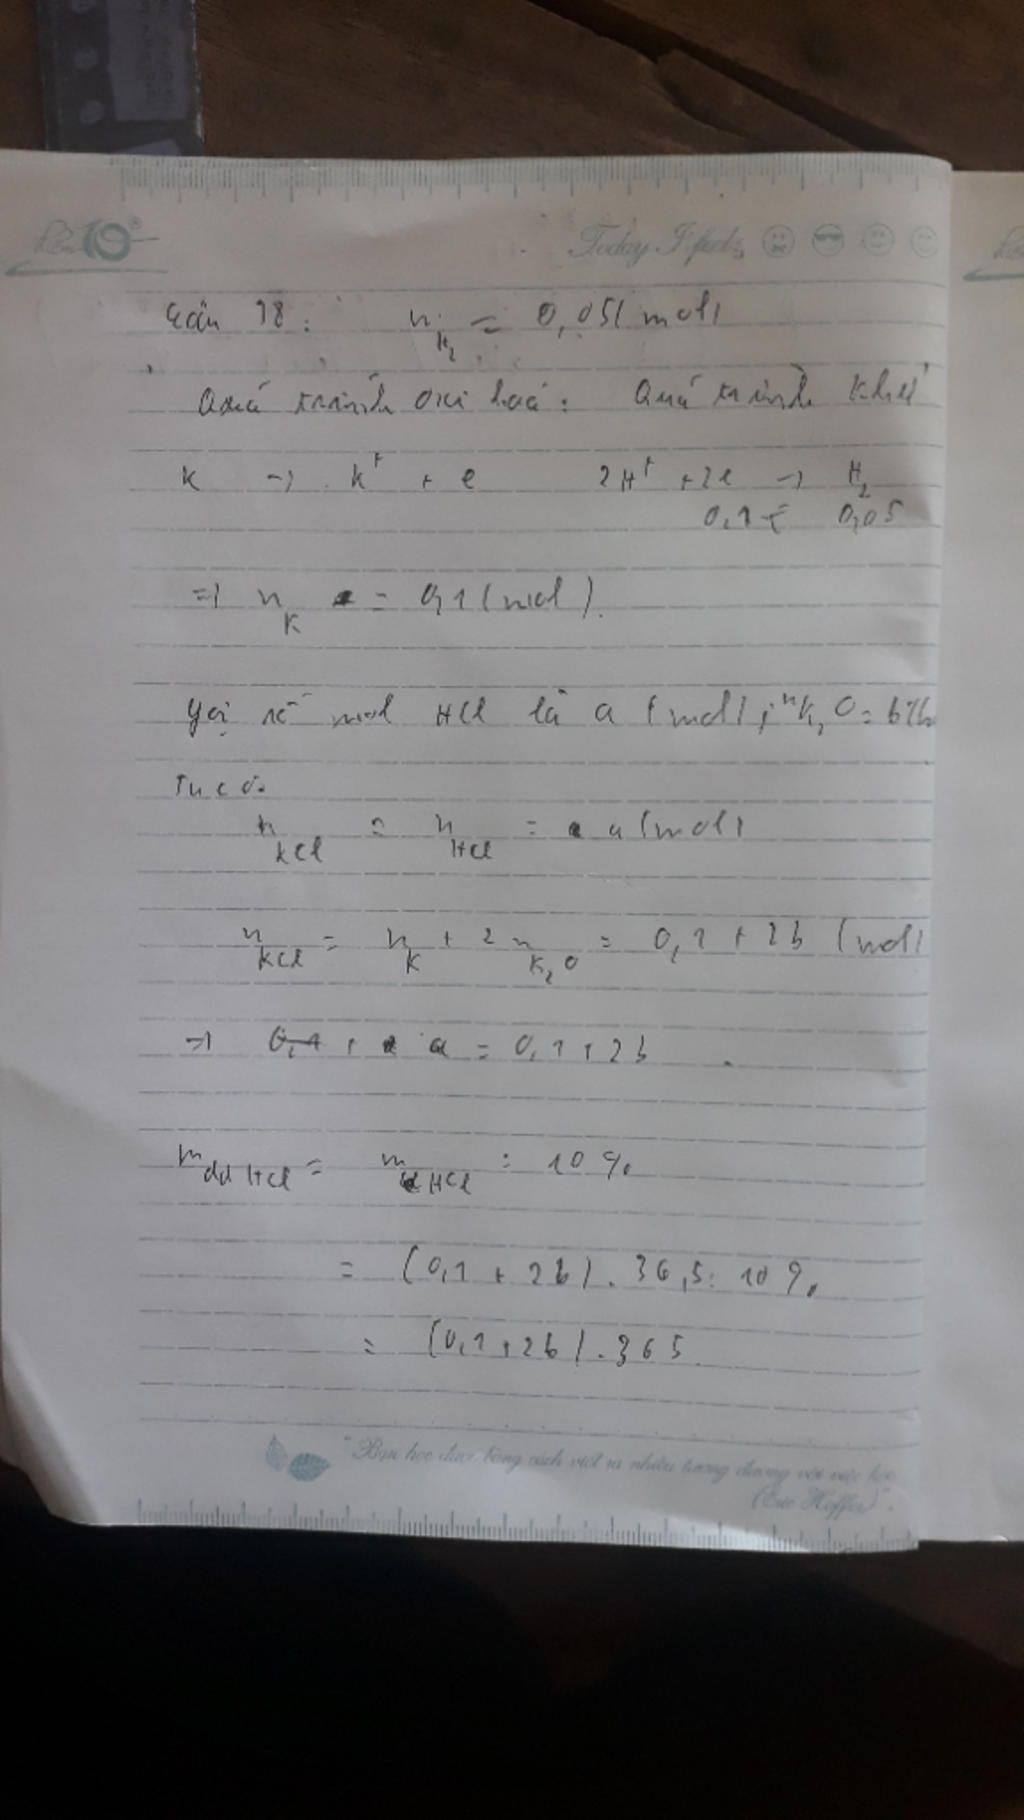 Today I feel:
Câu 18: n H2 = 0,05 (mol)
Quá trình oxi hoá: Quá trình khử
K → K+ + e 2H+ + 2e → H2
0,1 ← 0,05
=> n K = 0,1 (mol).
Gọi số mol HCl là a (mol); n K2O = b
Ta có:
n KCl = n HCl = a (mol)
n KCl = n K + 2 n K2O = 0,1 + 2b (mol)
=> a = 0,1 + 2b
m dd HCl = m HCl : 10%
= (0,1 + 2b) . 36,5 : 10%
= (0,1 + 2b) . 365
"Bạn học được bằng cách viết ra nhiều tương đương với việc học
(Eric Hoffer)".